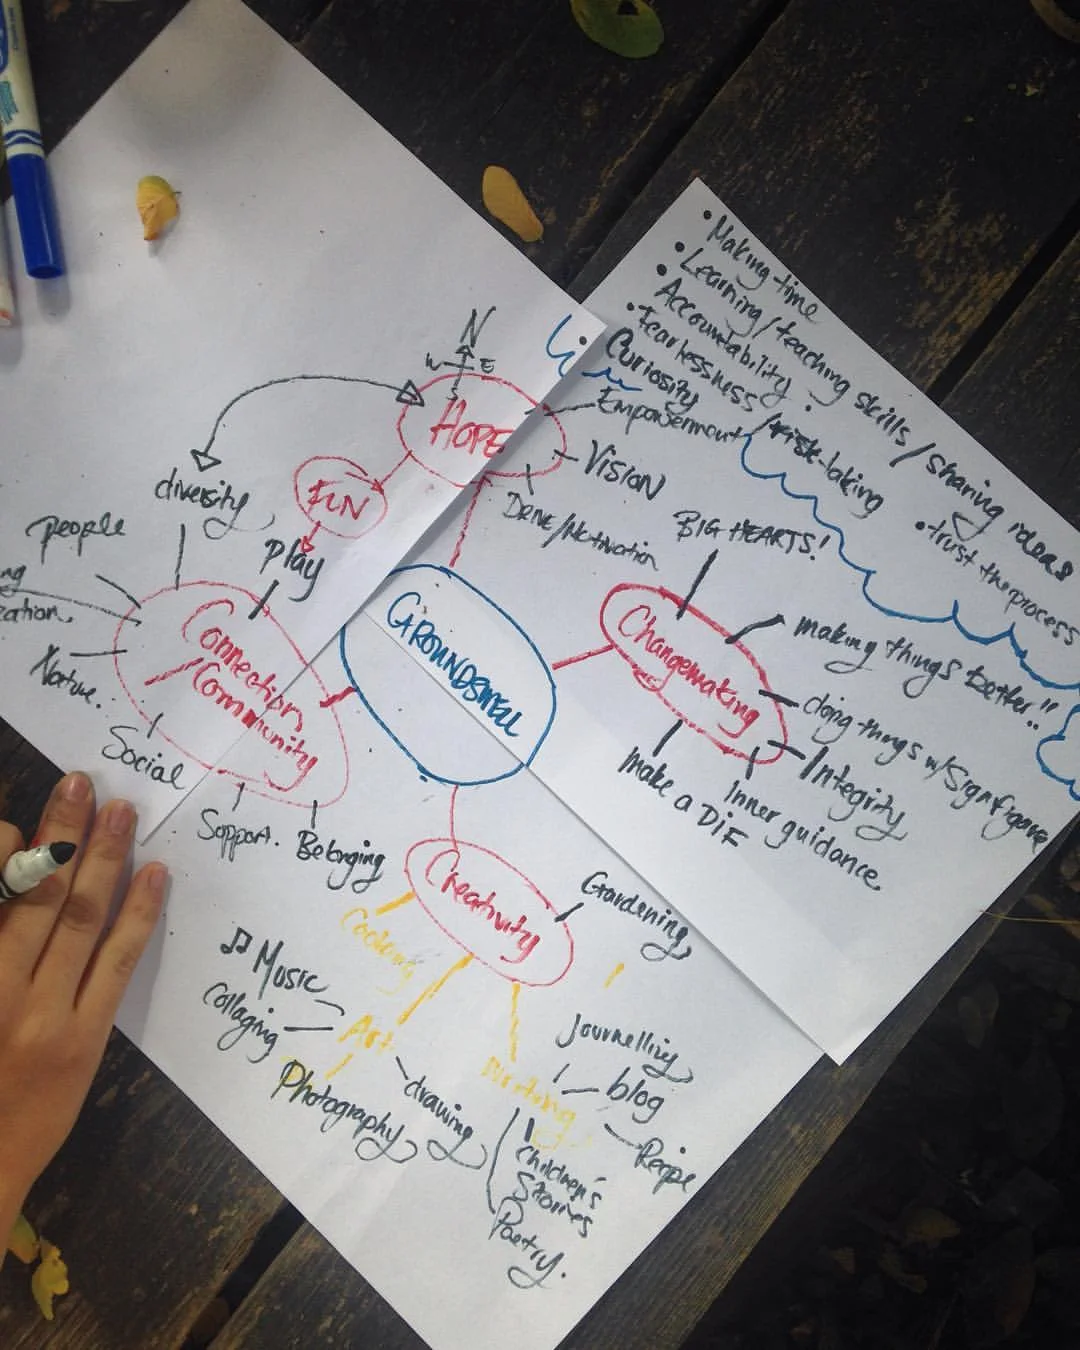 • Making time
• Learning/teaching skills/sharing ideas
• Accountability.
• Fearlessness/risk-taking
• Curiosity
• trust the process
N
W E
S
HOPE
Empowerment
VISION
DRIVE/Motivation
FUN
play
diversity
people
Nature.
Social
Support.
Belonging
Connection
/Community
GROUNDSWELL
Changemaking
BIG HEARTS!
making things better!!
doing things w/Signifigance
Integrity
Inner guidance.
make a DIF
Creativity
Gardening
Cooking
Art
Music
Collaging
Photography
drawing
Writing
Journelling
blog
Recipe
Children's
Stories
Poetry.